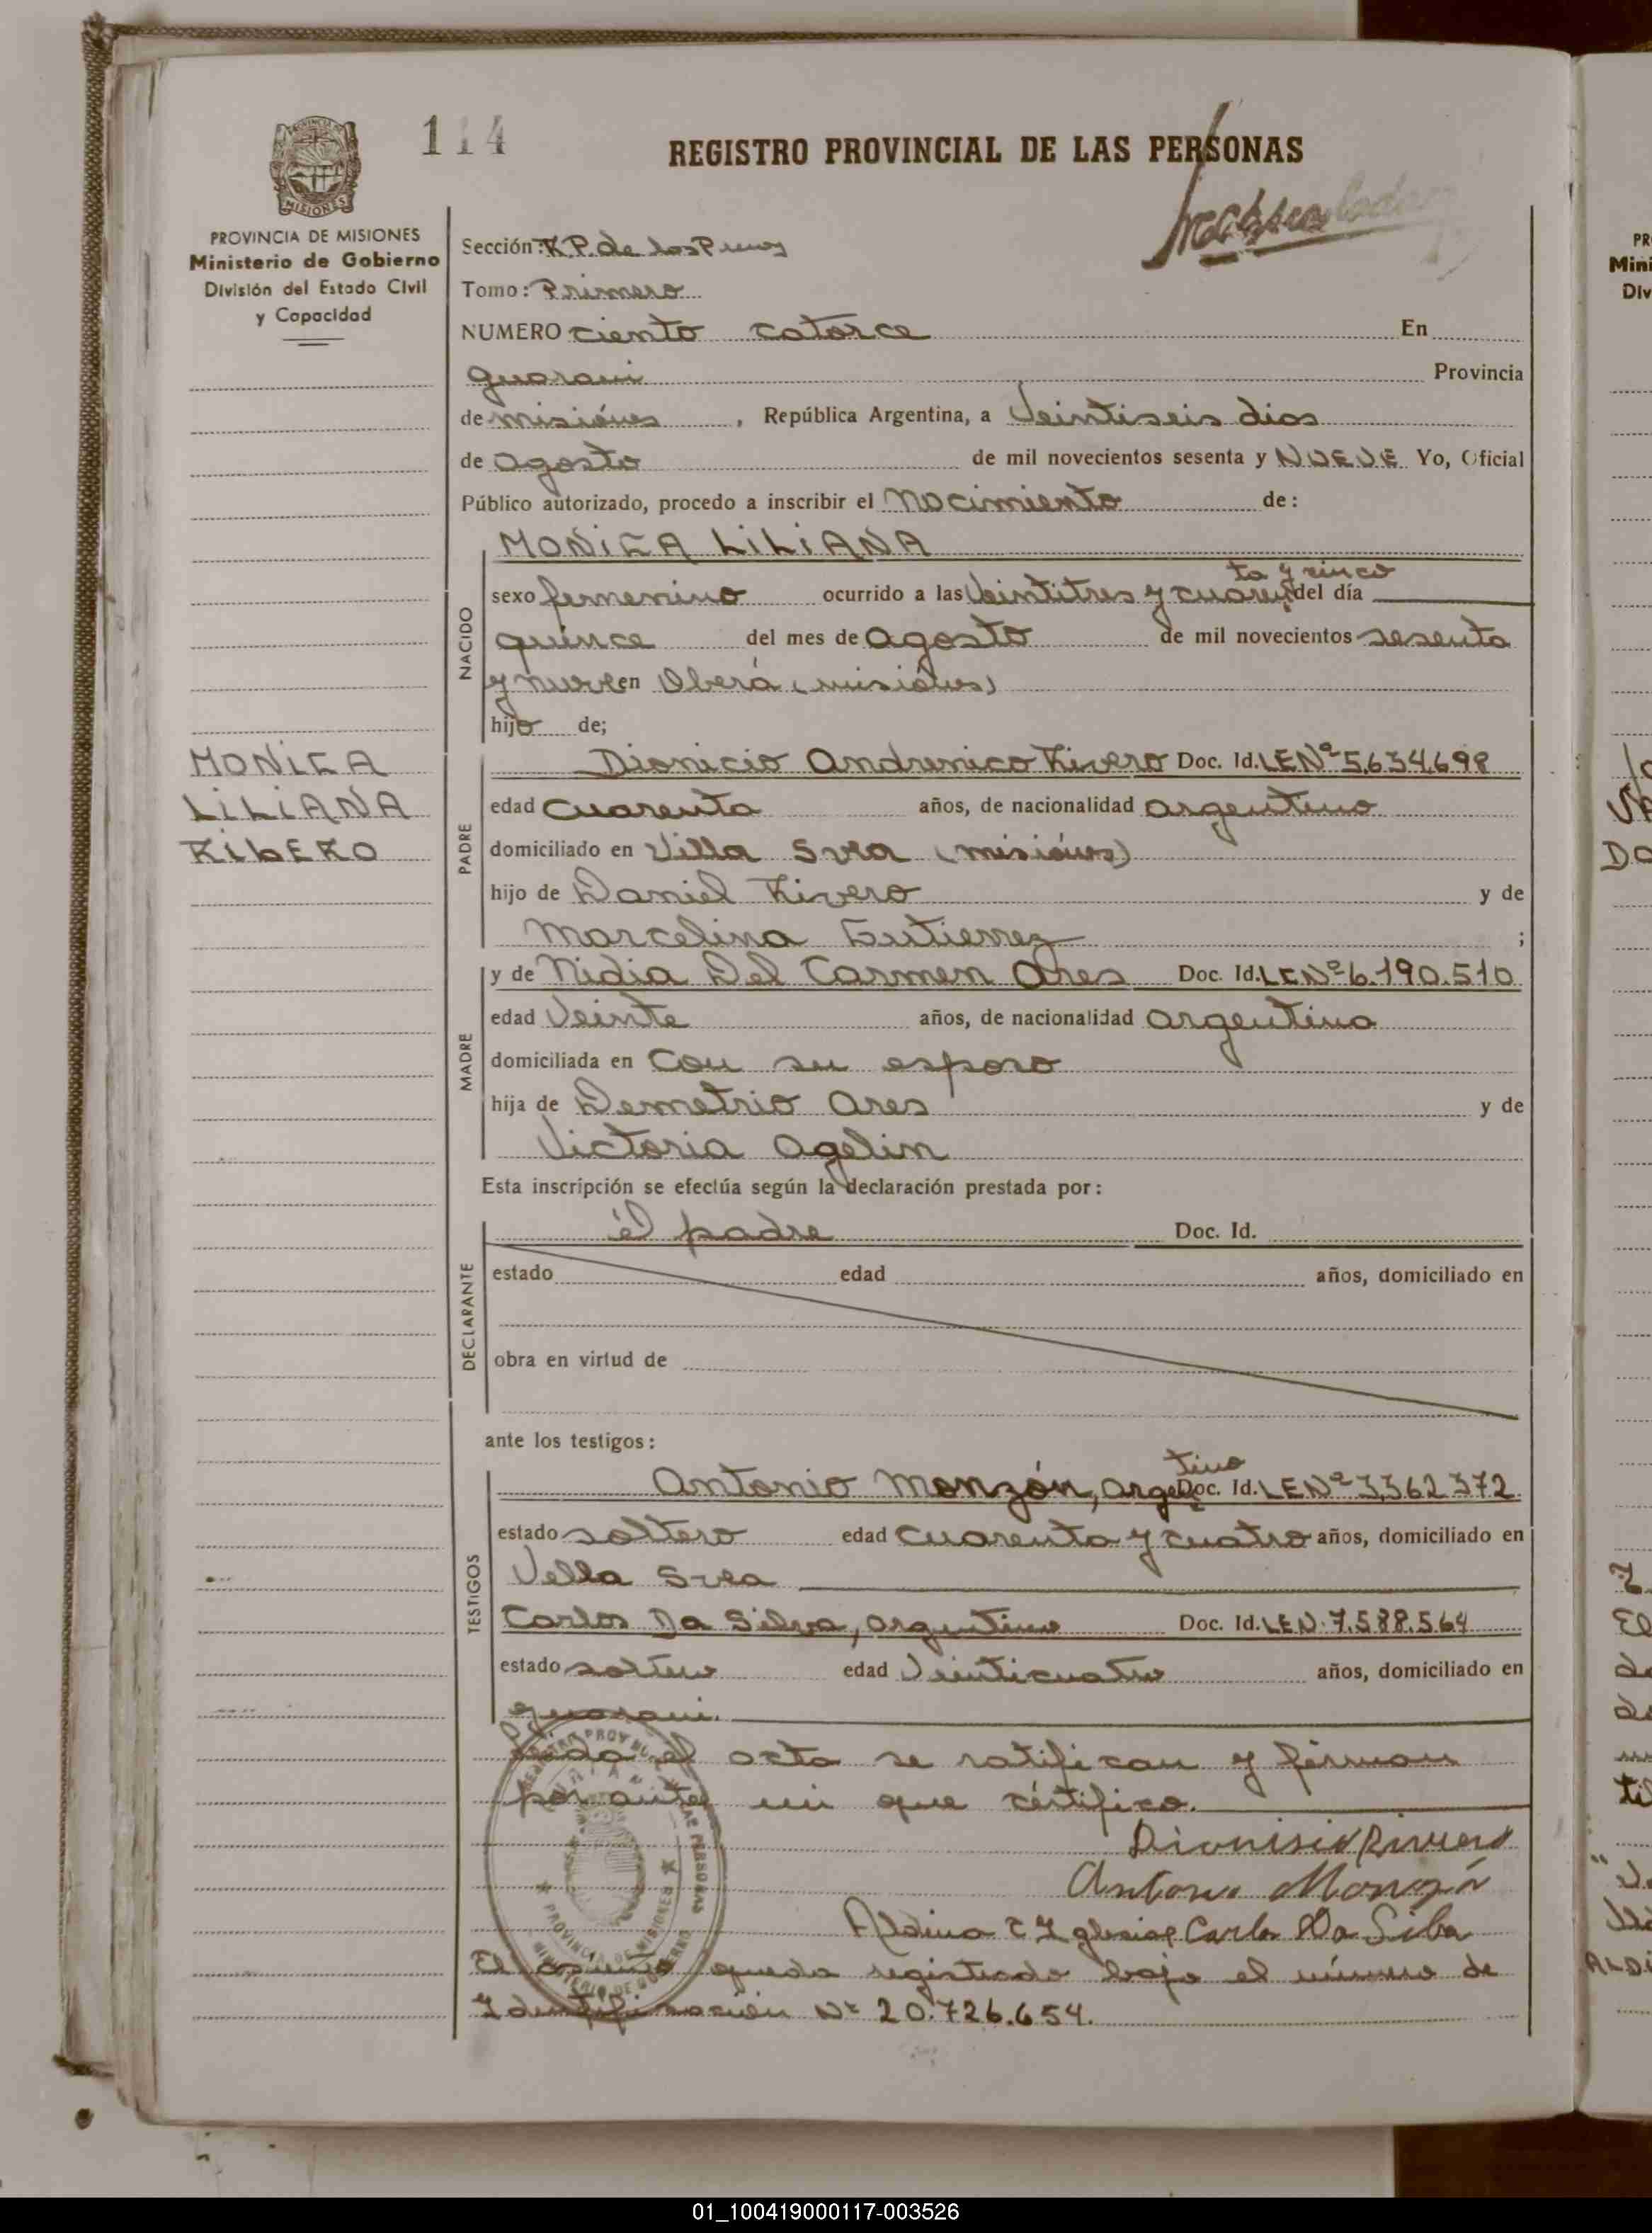 114
REGISTRO PROVINCIAL DE LAS PERSONAS
MISIONES
PROVINCIA DE MISIONES
Ministerio de Gobierno
División del Estado Civil
y Capacidad
Sección: R.P. de las P
Tomo: Primero
NUMERO ciento catorce En
Guarani Provincia
de misiónes, República Argentina, a Veintiseis dias
de agosto de mil novecientos sesenta y NUEVE Yo, Oficial
Público autorizado, procedo a inscribir el Nacimiento de:
MONICA LILIANA
ta y cinco
NACIDO
sexo femenino ocurrido a las Veintitres y cuaren del día
quince del mes de agosto de mil novecientos sesenta
y nueve en Oberá (misiónes)
hijo de;
MONICA
LILIANA
RIBERO
PADRE
Dionicio Andrenico Rivero Doc. Id. LENº 5.634.698
edad cuarenta años, de nacionalidad argentino
domiciliado en Villa Svea (misiónes)
hijo de Daniel Rivero y de
Marcelina Gutierrez ;
MADRE
y de Nidia Del Carmen Ares Doc. Id. LENº 6.190.510
edad Veinte años, de nacionalidad argentina
domiciliada en Con su esposo
hija de Demetrio Ares y de
Victoria Agelin
Esta inscripción se efectúa según la declaración prestada por:
DECLARANTE
él padre Doc. Id.
estado edad años, domiciliado en
obra en virtud de
ante los testigos:
TESTIGOS
tino
Antonio Monzón, argen Doc. Id. LENº 3.362.372
estado soltero edad cuarenta y cuatro años, domiciliado en
Vella Svea
Carlos Da Silva, argentino Doc. Id. LEN. 7.588.564
estado soltero edad Veinticuatro años, domiciliado en
guarani.
Leida el acta se ratifican y firman
por ante mi que certifico.
Dionisio Rivero
Antonio Monzón
Aldino Iglesias Carlo Da Silva
El queda registrado bajo el número de
Identificación Nº 20.726.654.
PROVINCIA DE MISIONES
MINISTERIO DE GOBIERNO
01_100419000117-003526